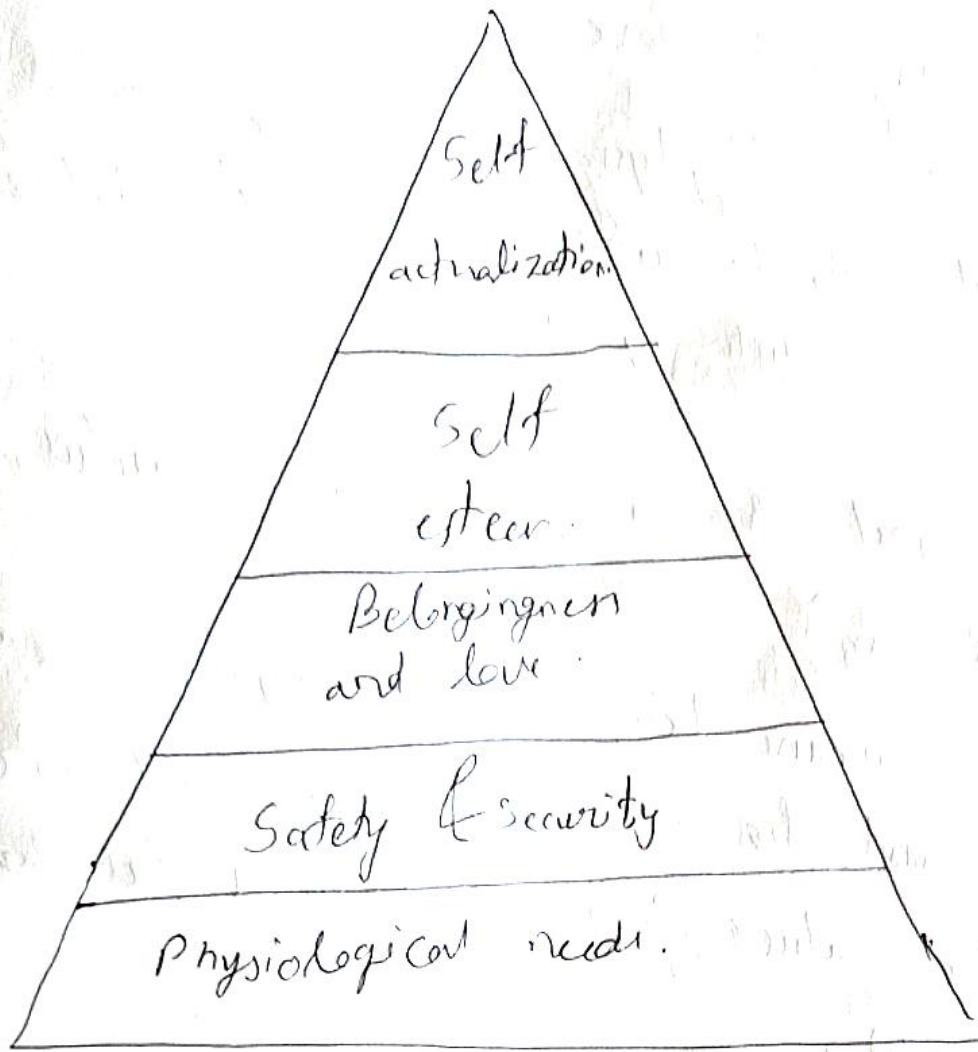 Self
actualization.
Self
esteem.
Belongingness
and love.
Safety & security
Physiological needs.